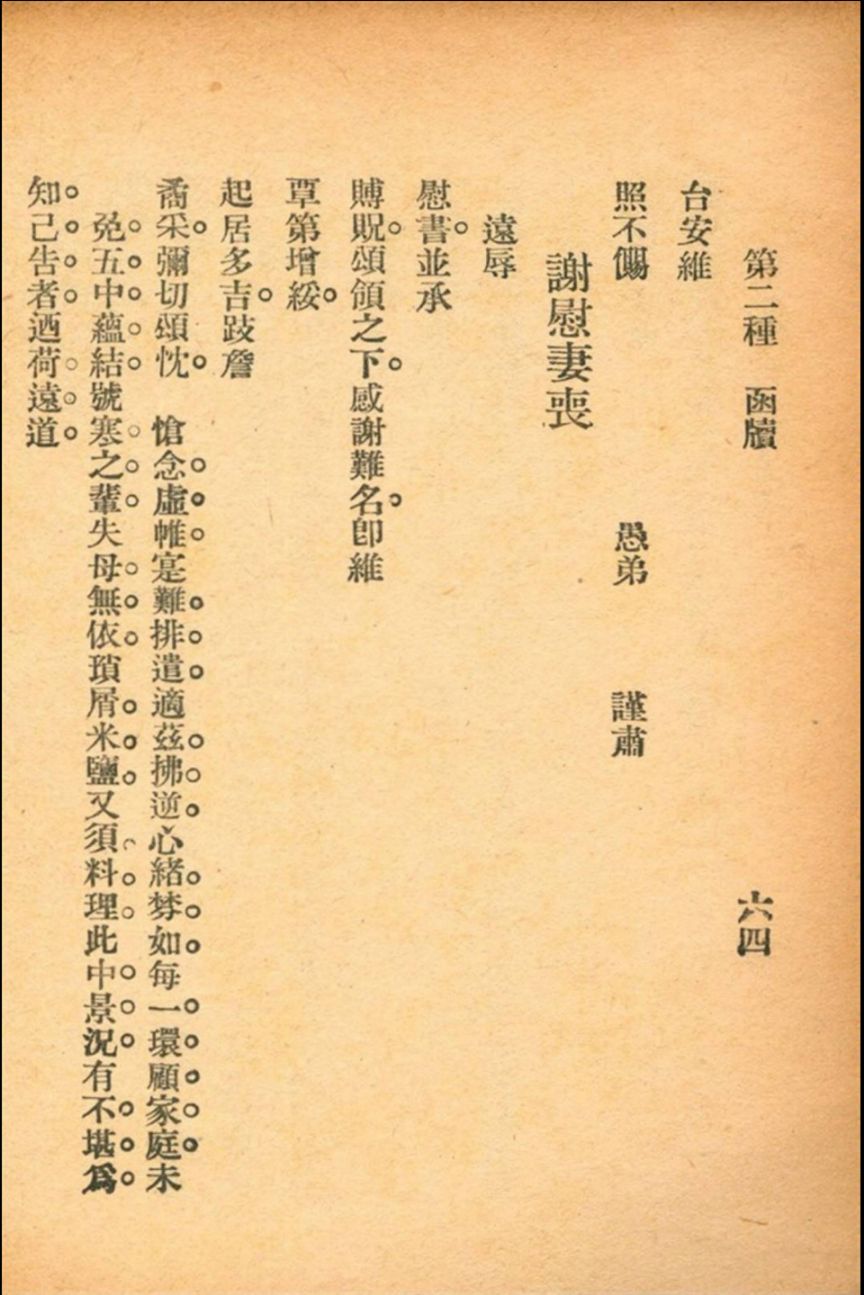 第二種 函牘 六四
台安維
照不儩 愚弟 謹肅
謝慰妻喪
遠辱
慰書。並承
賻貺。頌領之下。感謝難名。卽維
覃第增綏。
起居多吉。跂詹
矞采。彌切頌忱。 愴念虛帷。寔難排遣。適茲拂逆。心緒棼如。每一環顧家庭。未
免五中蘊結。號寒之輩。失母無依。瑣屑米鹽。又須料理。此中景況。有不堪爲
知己告者。迺荷遠道。